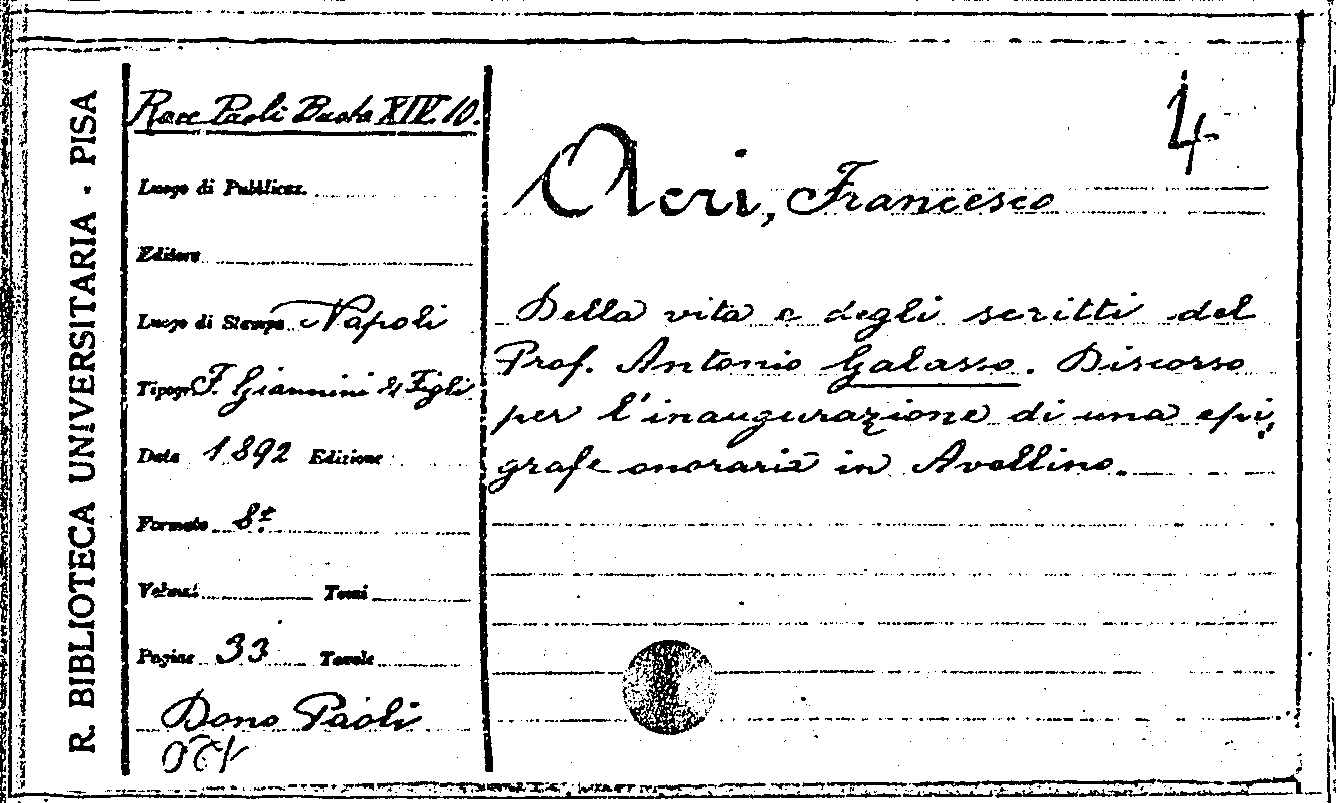 R. BIBLIOTECA UNIVERSITARIA - PISA
Racc Paoli Busta XIV. 10.
Luogo di Pubblicaz.
Editore
Luogo di Stampa Napoli
Tipogr. F. Giannini & Figli
Data 1892 Edizione
Formato 8º
Volumi Tomi
Pagine 33 Tavole
Dono Paoli
4
Acri, Francesco
Della vita e degli scritti del
Prof. Antonio Galasso. Discorso
per l'inaugurazione di una epi,
grafe onoraria in Avellino.